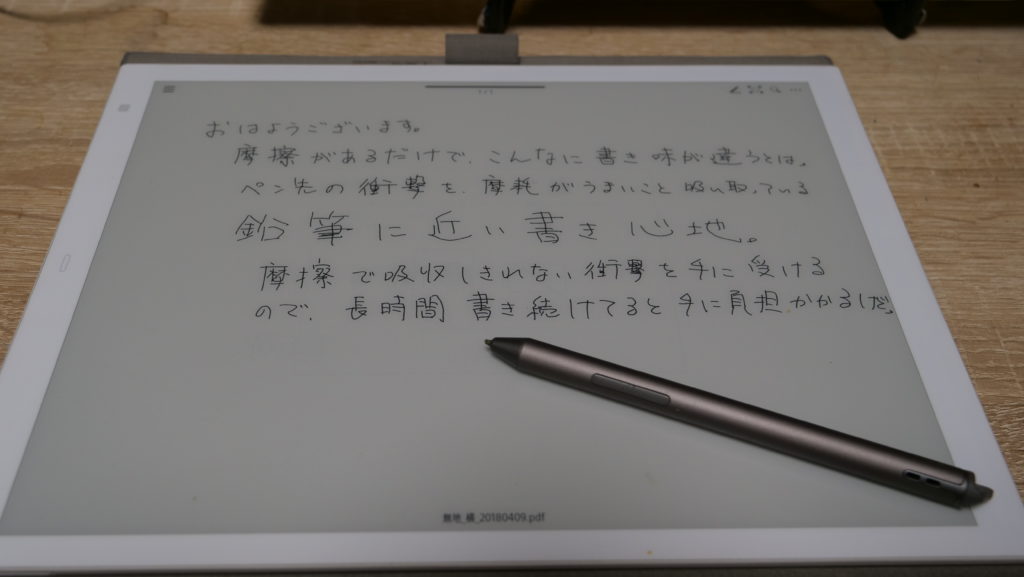 1/1
おはようございます。
摩擦があるだけで、こんなに書き味が違うとは。
ペン先の衝撃を、摩耗がうまいこと吸い取っている
鉛筆に近い書き心地。
摩擦で吸収しきれない衝撃を手に受ける
ので、長時間書き続けてると手に負担かかるしだ。
無地_横_20180409.pdf